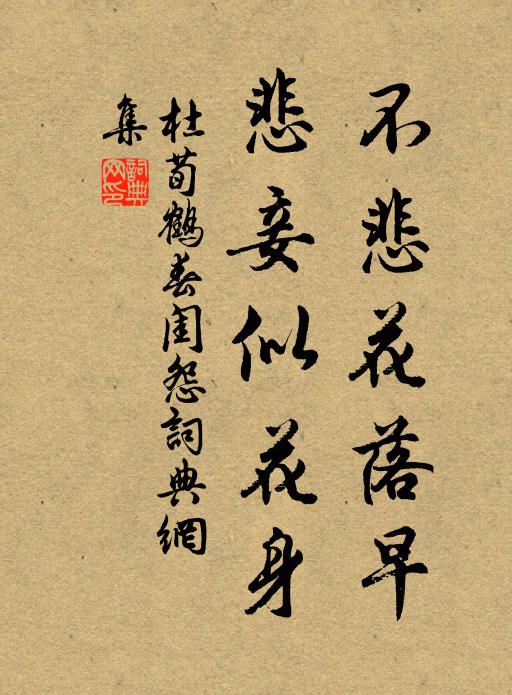 不悲花落早
悲妾似花身
杜荀鶴春閨怨詞典網
集
詞典
网印